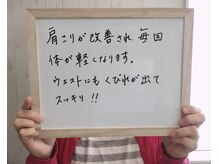 肩こりが改善され、毎回
体が軽くなります。
ウエストにもくびれが出て
スッキリ!!